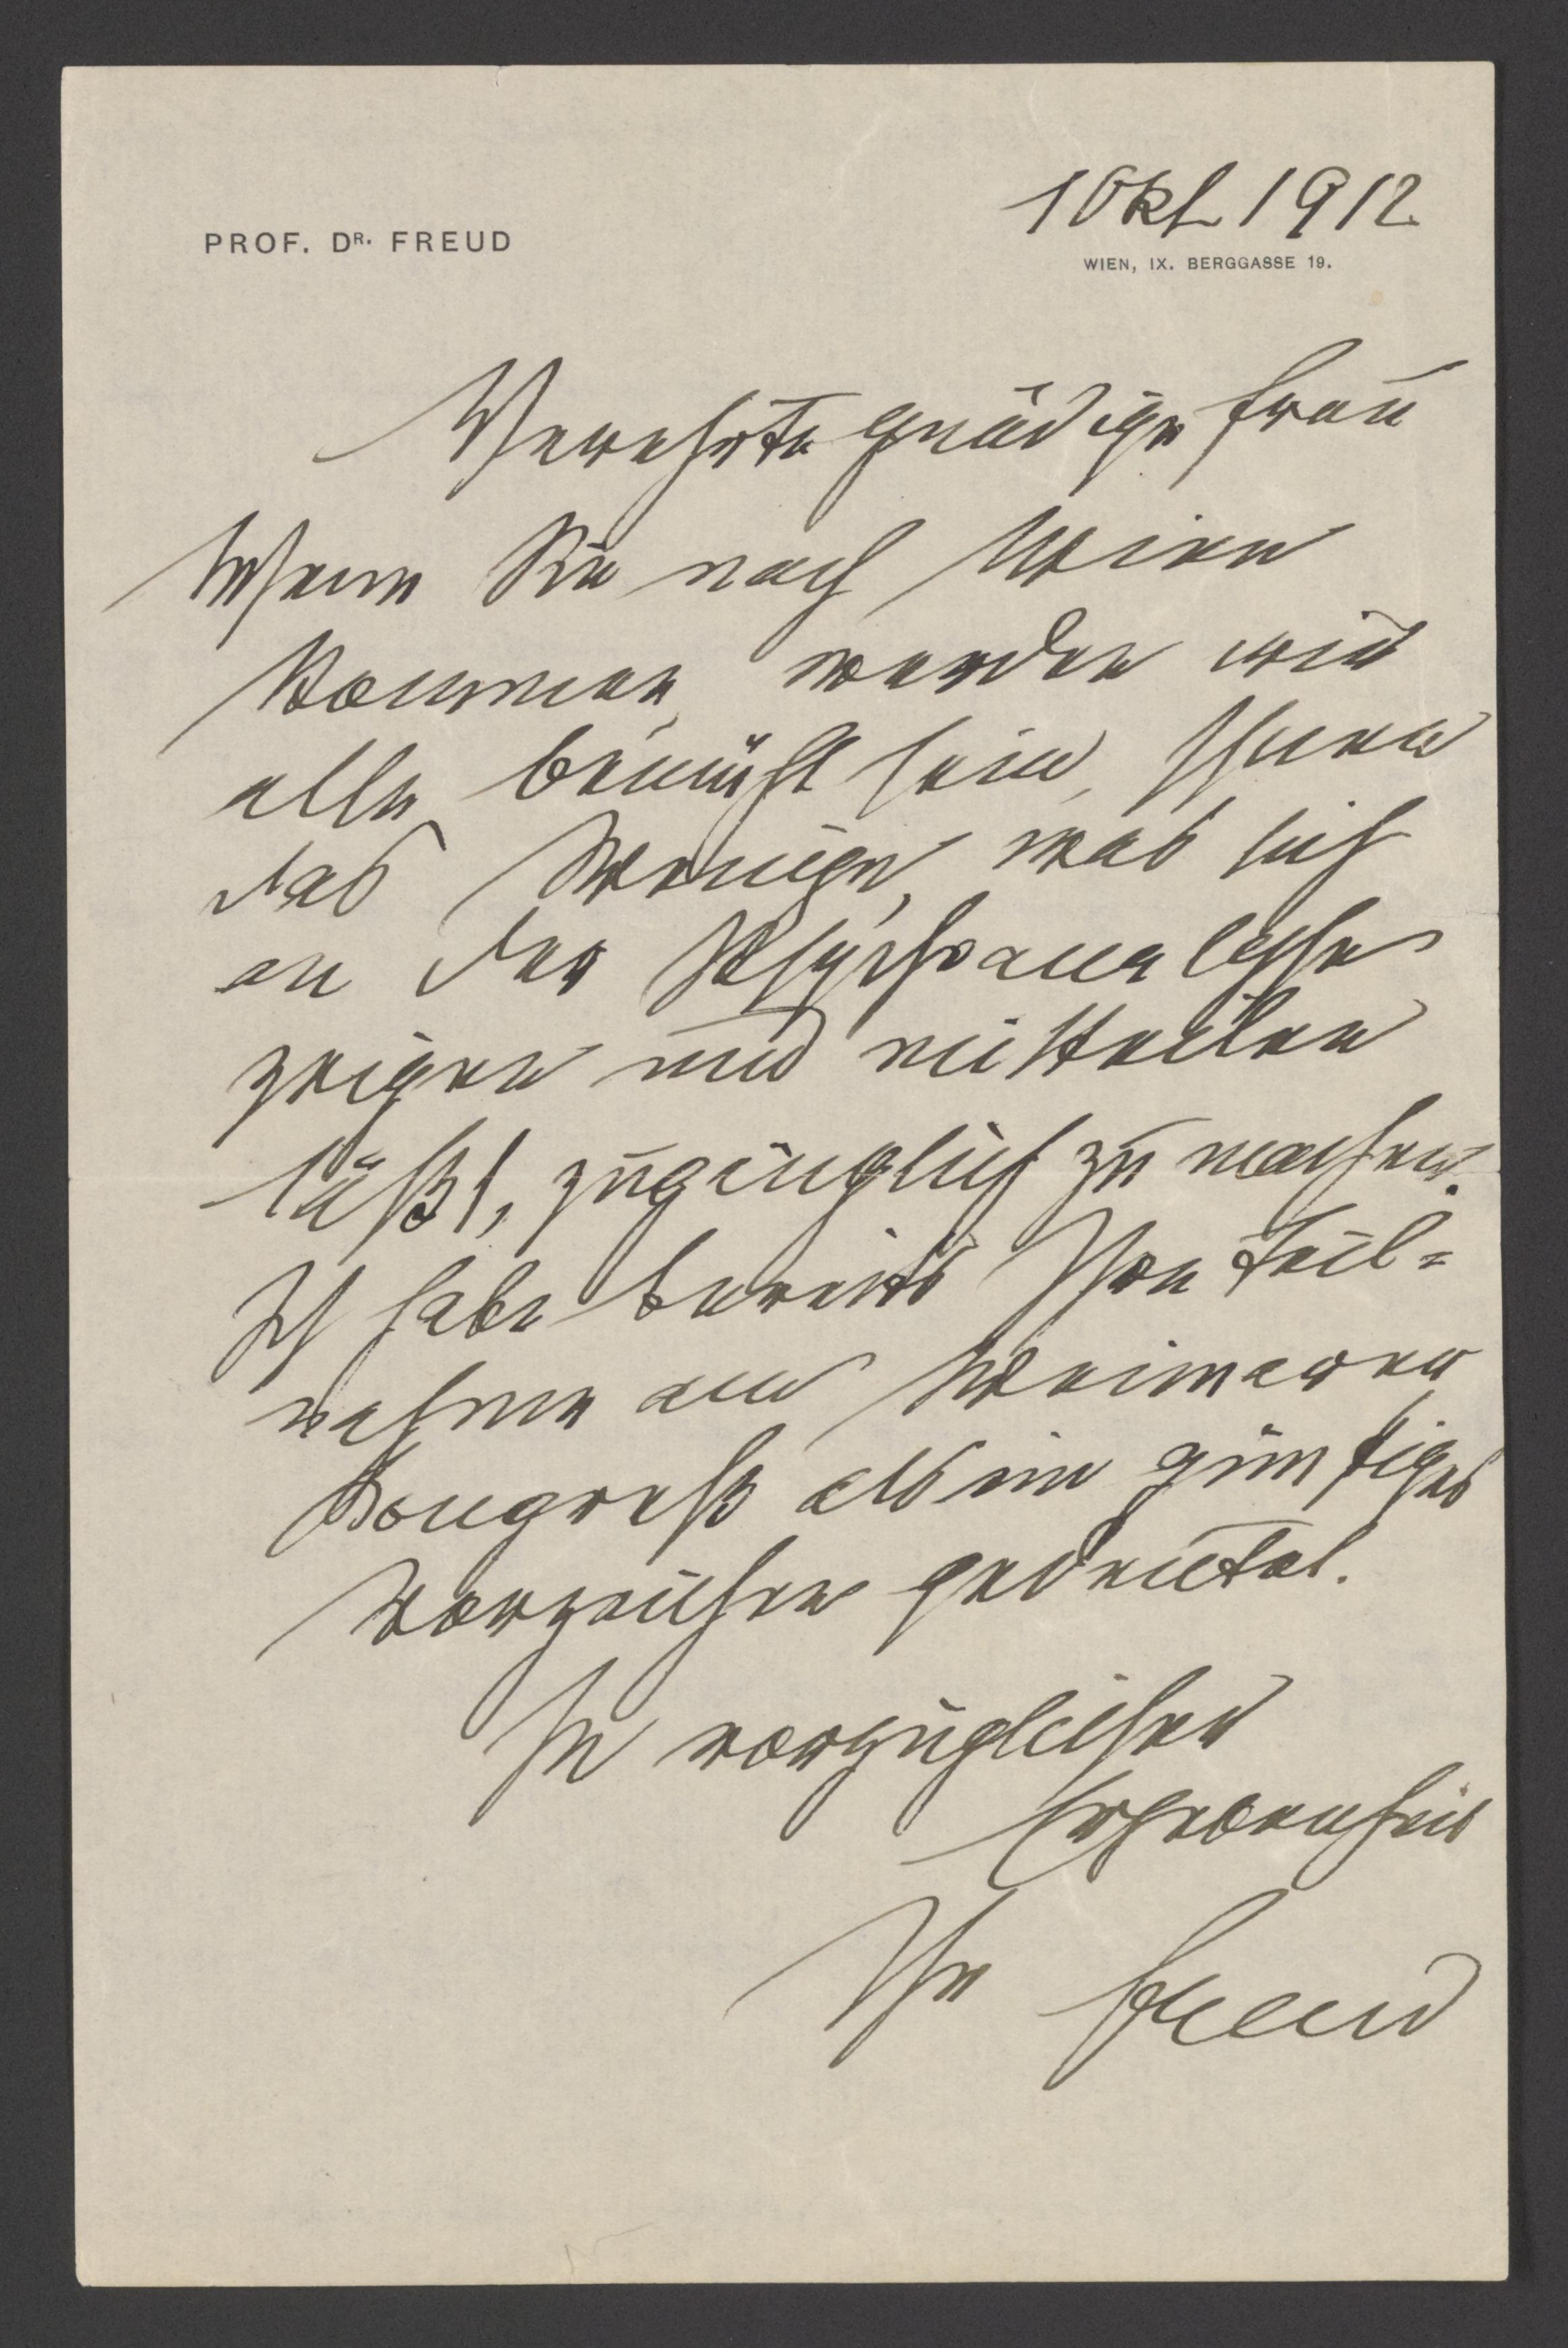 1 Okt 1912
PROF. DR. FREUD
WIEN, IX. BERGGASSE 19.
Verehrte gnädige Frau
Wenn Sie nach Wien
kommen, werden wir
alle bemüht sein, Ihnen
das Wenige, was sich
an der Psychoanalyse
zeigen und mitteilen
läßt, zugänglich zu machen.
Ich habe bereits Ihre Teil=
nahme am Weimarer
Kongreß als ein günstiges
Vorzeichen gedeutet.
In vorzüglicher
Ergebenheit
Ihr Freud